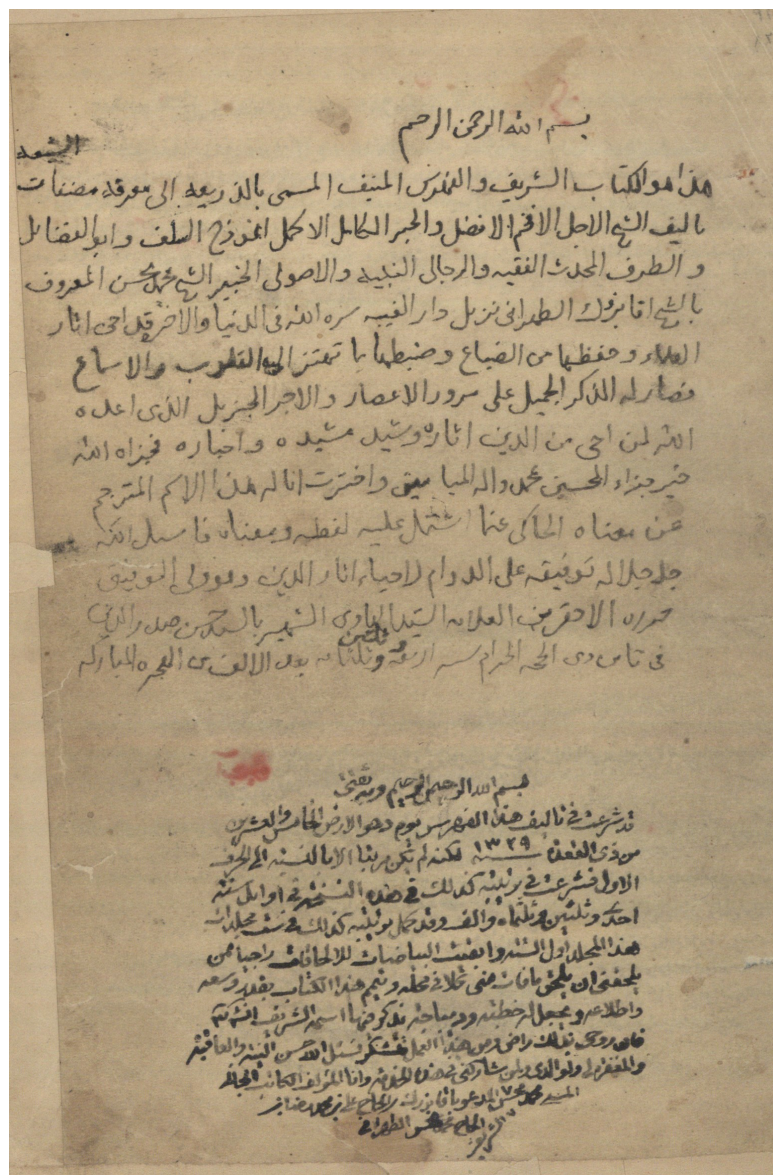 بسم الله الرحمن الرحيم
الشيعة
هذا هو الكتاب الشريف والفهرس المنيف المسمى بالذريعه الى معرفة مصنفات
تاليف الشيخ الاجل الافخم الافضل والحبر الكامل الاكمل انموذج السلف وابو الفضائل
و الطرف المحدث الفقيه والرجالى النبيه والاصولى الخبير الشيخ محمد محسن المعروف
بالشيخ اقا بزرك الطهرانى نزيل دار الغيبه سره الله فى الدنيا والاخره قد احى اثار
العلماء وحفظها من الضياع وضبطها بما تهتز اليه القلوب والاسماع
فصار له الذكر الجميل على مرور الاعصار والاجر الجزيل الذى اعده
الله لمن احى من الدين اثاره وشيد مشيده واخباره فجزاه الله
خير جزاء المحسنين بمحمد واله الميامين واخترت انا له هذا الاسم المترجم
عن معناه الحاكى عما اشتمل عليه لفظه ومعناه فاسال الله
جل جلاله توفيقه على الدوام لاحياء اثار الدين وهو ولى التوفيق
حرره الاحقر ابن العلامه السيد الهادى الشهير بالسيد حسن صدر الدين
فى ثامن ذى الحجه الحرام سنه الاربعه وثلثين وثلثمائه بعد الالف من الهجره المباركه
بسم الله الرحمن الرحيم وبه ثقتى
قد شرعت فى تاليف هذا الفهرس يوم دحو الارض الخامس والعشرين
من ذى القعدة سنه ١٣٢٩ لكنه لم يكن مرتبا الا بالنسبة الى الحرف
الاول فشرعت فى ترتيبه كذلك فى هذه النسخة فى اوايل سنة
احدى وثلثين وثلثماه والف وقد كمل ترتيبه كذلك فى ست مجلدات
هذا المجلد اول الستة وابقيت البياضات للالحاقات راجيا ممن
يلحقنى ان يلحق مافات منى كلا فى محله ويتمم هذا الكتاب بقدر وسعه
واطلاعه ويجعل له خطبة وديباجة يذكر فيها اسمه الشريف
فان روحى بذلك راض ومن هذا العمل متشكر نسئل الله حسن النية والعاقبة
والمغفرة لى ولوالدى ولمن شاركنى فى هذه الخدمة وانا المؤلف الكاتب الجانى
المسيء محمد محسن المدعو باقا بزرك ابن الحاج على بن محمد رضا بن
الحاج محسن الطهرانى